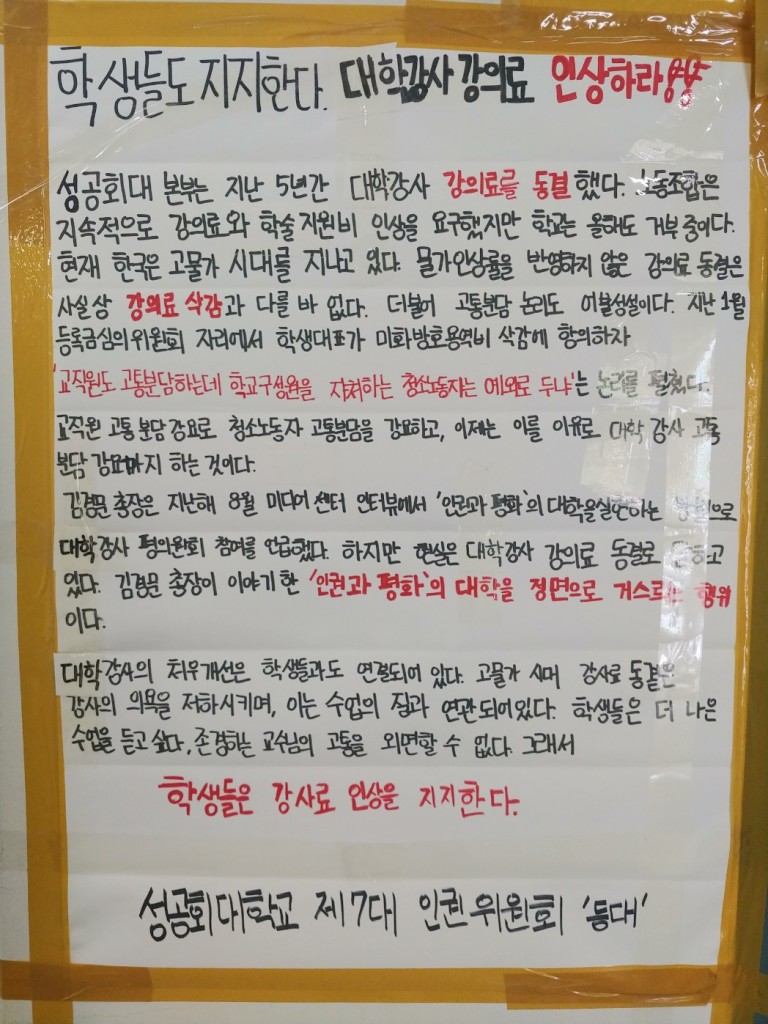 학생들도 지지한다. 대학강사 강의료 인상하라!!
성공회대 본부는 지난 5년간 대학강사 강의료를 동결했다. 노동조합은
지속적으로 강의료와 학술지원비 인상을 요구했지만 학교는 올해도 거부중이다.
현재 한국은 고물가 시대를 지나고 있다. 물가인상률을 반영하지 않은 강의료 동결은
사실상 강의료 삭감과 다를 바 없다. 더불어 고통분담 논리도 어불성설이다. 지난 1월
등록금심의위원회 자리에서 학생대표가 미화방호용역비 삭감에 항의하자
'교직원도 고통분담하는데 학교구성원을 자처하는 청소노동자는 예외로 두냐'는 논리를 펼쳤다.
교직원 고통 분담 강요로 청소노동자 고통분담을 강요하고, 이제는 이를 이유로 대학 강사 고통
분담 강요까지 하는 것이다.
김경문 총장은 지난해 8월 미디어센터 인터뷰에서 '인권과 평화'의 대학을실현하는 방법으로
대학강사 평의원회 참여를 언급했다. 하지만 현실은 대학강사 강의료 동결로 답하고
있다. 김경문 총장이 이야기한 '인권과 평화'의 대학을 정면으로 거스르는 행위
이다.
대학강사의 처우개선은 학생들과도 연결되어 있다. 고물가 시대 강사료 동결은
강사의 의욕을 저하시키며, 이는 수업의 질과 연관되어있다. 학생들은 더 나은
수업을 듣고 싶다, 존경하는 교수님의 고통을 외면할 수 없다. 그래서
학생들은 강사료 인상을 지지한다.
성공회대학교 제7대 인권위원회 '등대'